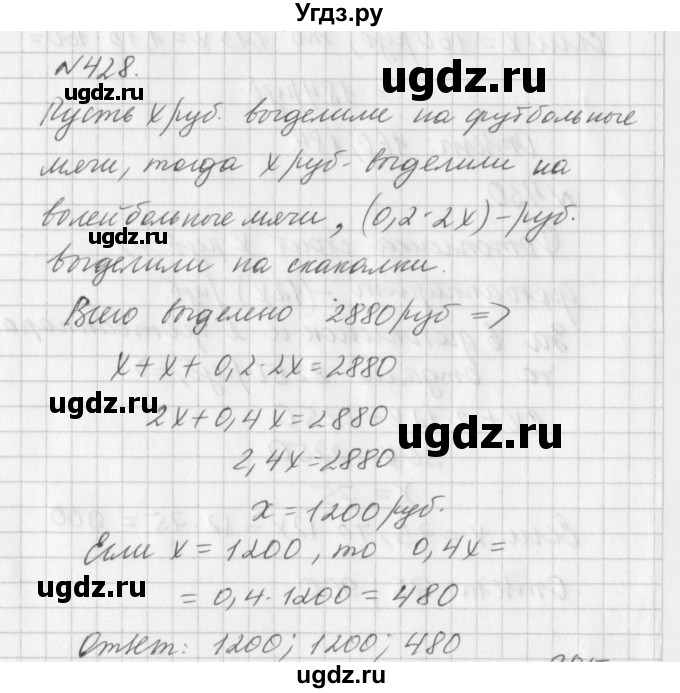 Угдз.ру
№428.
Пусть x руб. выделили на футбольные
мячи, тогда x руб. выделили на
волейбольные мячи, (0,2·2x) – руб.
выделили на скакалки.
Всего выделено 2880 руб =>
x+x+0,2·2x=2880
2x+0,4x=2880
2,4x=2880
x=1200 руб.
Если x=1200, то 0,4x=
=0,4·1200=480
Ответ: 1200; 1200; 480
ugdz.ru
ugdz.ru
ugdz.ru
ugdz.ru
ugdz.ru
ugdz.ru
ugdz.ru
ugdz.ru